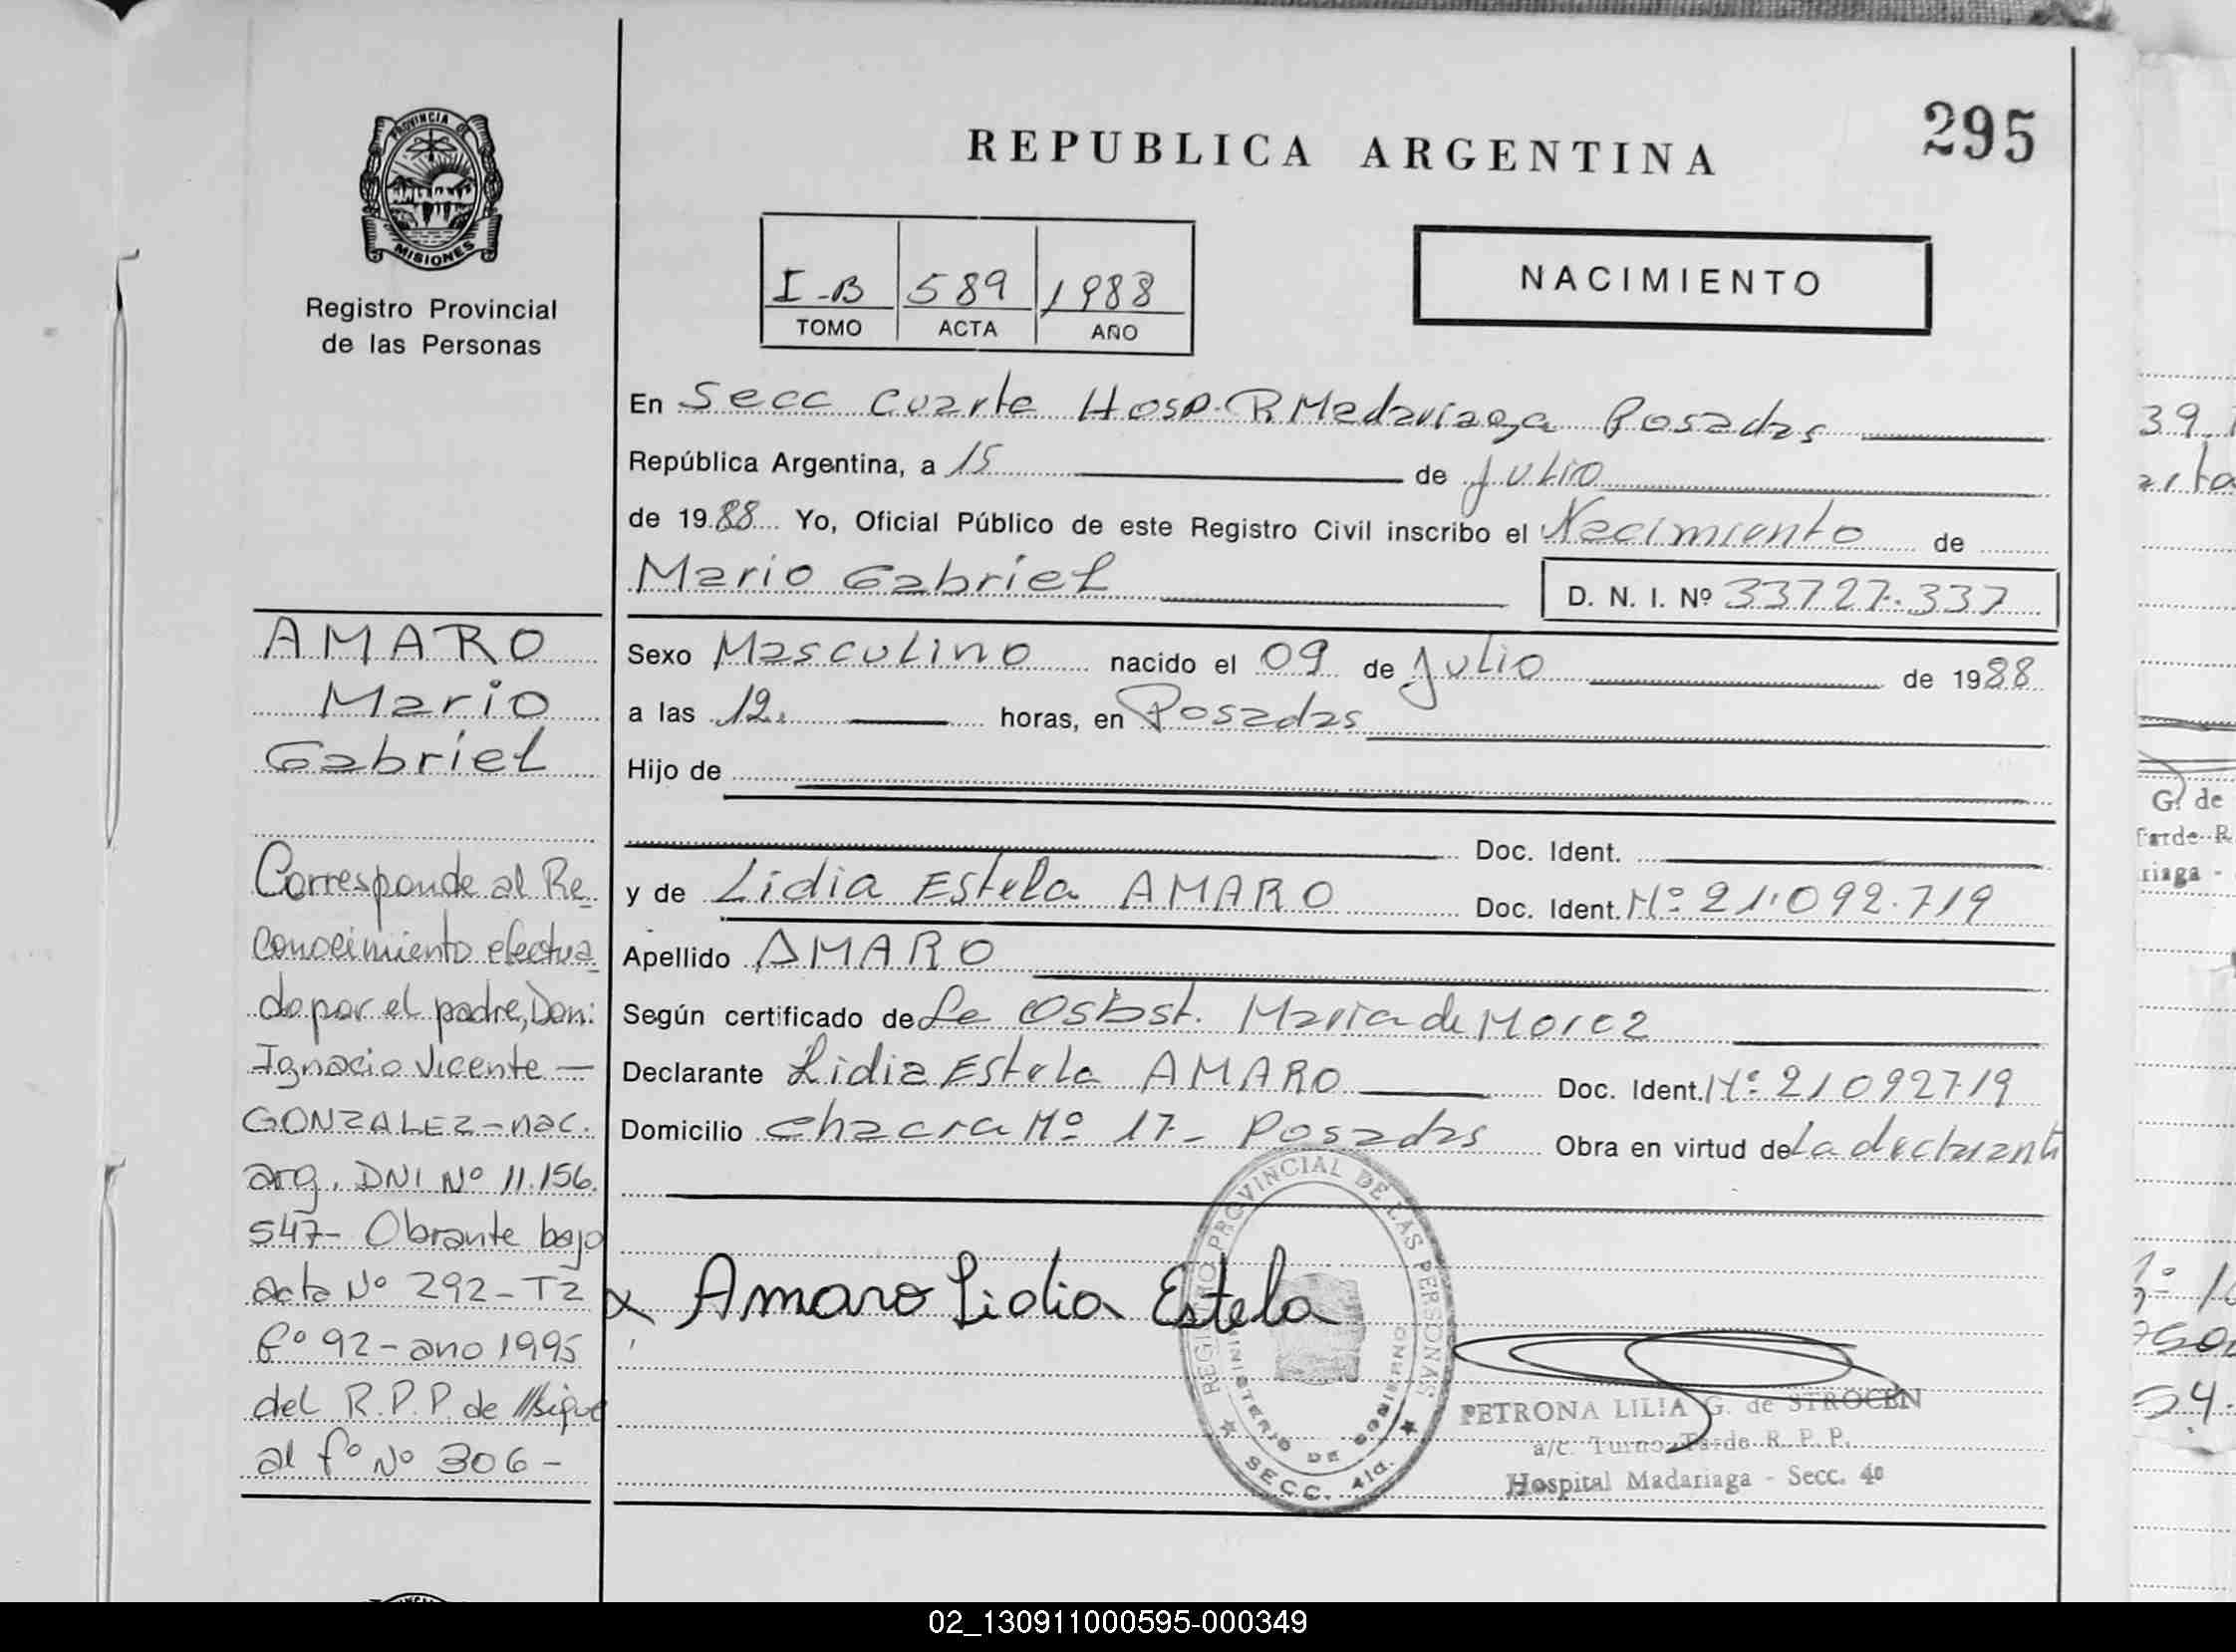 PROVINCIA DE
MISIONES
Registro Provincial
de las Personas
REPUBLICA ARGENTINA
295
I-B 589 1988
TOMO ACTA AÑO
NACIMIENTO
En Secc Cuarta Hosp. R Madariaga Posadas
República Argentina, a 15 de Julio
de 1988 Yo, Oficial Público de este Registro Civil inscribo el Nacimiento de
Mario Gabriel D. N. I. Nº 33727.337
Sexo Masculino nacido el 09 de Julio de 1988
a las 12. horas, en Posadas
Hijo de
Doc. Ident.
y de Lidia Estela AMARO Doc. Ident. Nº 21.092.719
Apellido AMARO
Según certificado de la Maria de
Declarante Lidia Estela AMARO Doc. Ident. Nº 21092719
Domicilio Chacra Nº 17- Posadas Obra en virtud de La declarante
AMARO
Mario
Gabriel
Corresponde al Re-
conocimiento efectua-
do por el padre, Don:
Ignacio Vicente —
GONZALEZ-nac.
arg. DNI Nº 11.156.
547- Obrante bajo
acta Nº 292-T2
fº 92-ano 1995
del R.P.P. de sigue
al fº Nº 306-
x Amaro Lidia Estela
REGISTRO PROVINCIAL DE LAS PERSONAS
MINISTERIO DE GOBIERNO
SECC. 4ta.
PETRONA LILIA G. de STROCEN
a/c. Turno Tarde R. P. P.
Hospital Madariaga - Secc. 4a
39.
G. de
Tarde R.
riaga -
54.
02_130911000595-000349